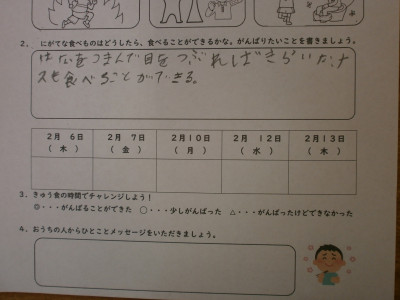 2、 にがてな食べものはどうしたら、食べることができるかな。がんばりたいことを書きましょう。
はなをつまんで目をつぶればきらいなナ
スを食べることができる。
2月 6日 2月 7日 2月10日 2月 12日 2月13日
(木) (金) (月) (水) (木)
3、きゅう食の時間でチャレンジしよう!
◎・・・がんばることができた ○・・・少しがんばった △・・・がんばったけどできなかった
4、おうちの人からひとことメッセージをいただきましょう。